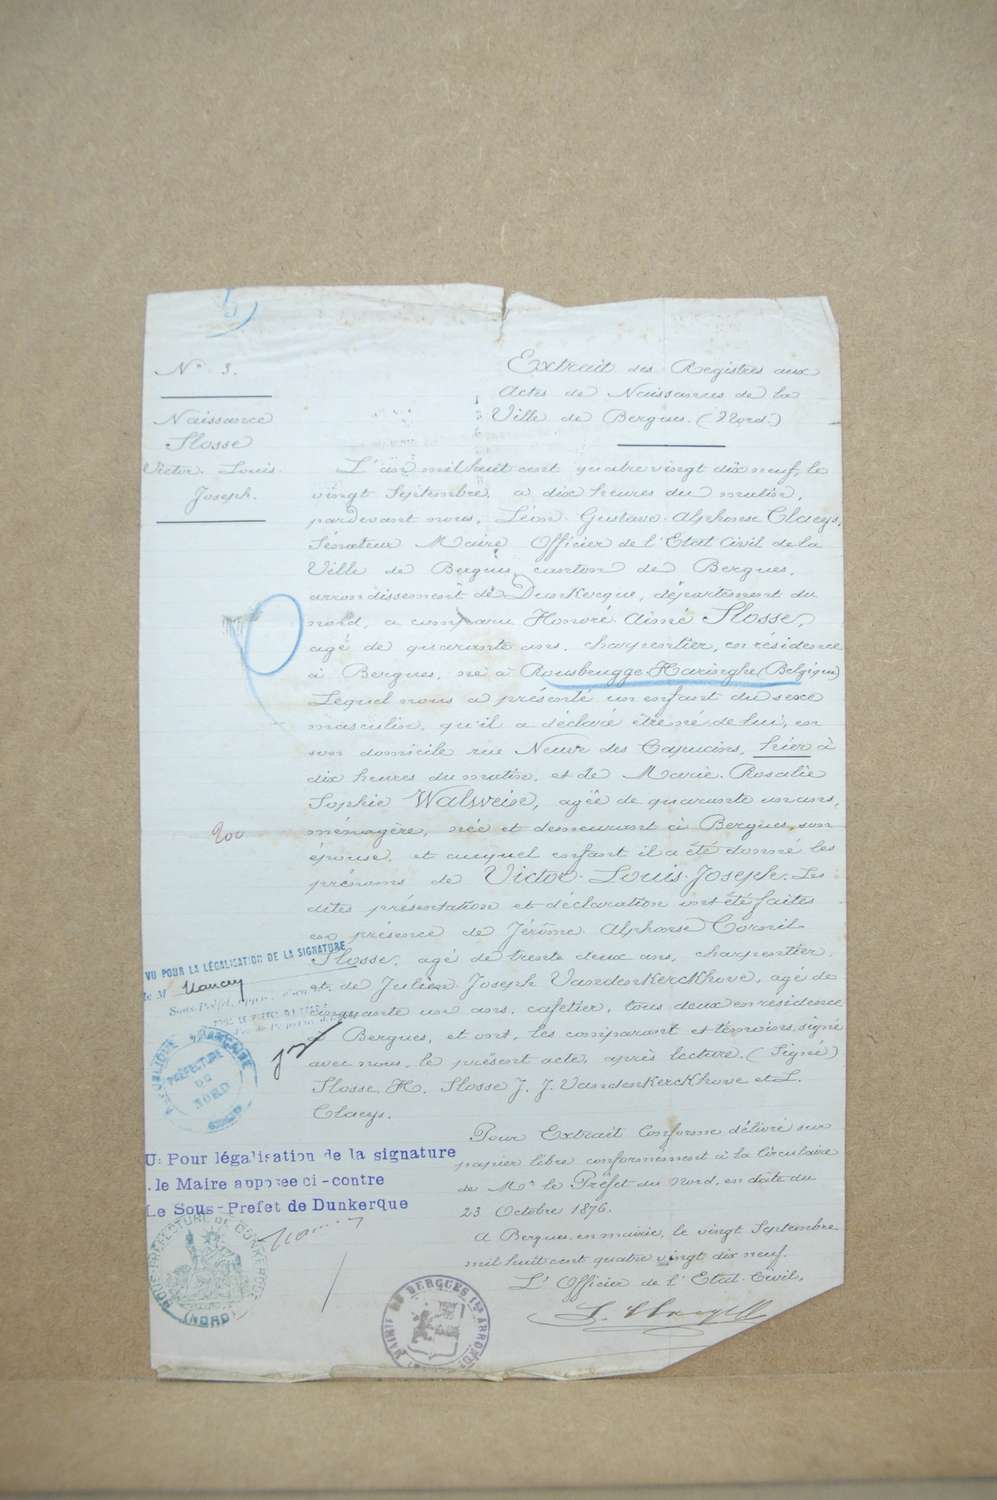 5
N° 3.
Naissance
Slosse
Victor. Louis.
Joseph.
Extrait des Registres aux
Actes de Naissances de la
Ville de Bergues. (Nord.)
L'an mil huit cent quatre vingt dix neuf, le
vingt Septembre, à dix heures du matin,
pardevant nous, Léon Gustave Alphonse Claeys,
Sénateur Maire Officier de l'Etat Civil de la
Ville de Bergues, canton de Bergues,
arrondissement de Dunkerque, département du
nord, a comparu Honoré Aimé Slosse,
agé de quarante ans, charpentier, en résidence
à Bergues, né à Rousbrugge-Haringhe (Belgique)
Lequel nous a présenté un enfant du sexe
masculin, qu'il a déclaré être né de lui, en
son domicile rue Neuve des Capucins, hier à
dix heures du matin, et de Marie. Rosalie
Sophie Walweine, agée de quarante un ans,
ménagère, née et demeurant à Bergues, son
épouse, et auquel enfant il a été donné les
prénoms de Victor. Louis. Joseph. Les
dites présentation et déclaration ont été faites
en présence de Jérôme Alphonse Corneil
Slosse, agé de trente deux ans, charpentier,
et de Julien Joseph Vandenkerckhove, agé de
cinquante un ans, cafetier, tous deux en résidence
à Bergues, et ont, les comparant et témoins, signé
avec nous, le présent acte, après lecture. (Signé)
Slosse. H. Slosse J. J. Vandenkerckhove et L.
Claeys.
Pour Extrait Conforme délivré sur
papier libre conformément à la Circulaire
de Mr le Préfet du Nord, en date du
23 Octobre 1876.
A Bergues, en mairie, le vingt Septembre
mil huit cent quatre vingt dix neuf.
L'Officier de l'Etat Civil,
200
VU POUR LA LÉGALISATION DE LA SIGNATURE
de M
RÉPUBLIQUE FRANÇAISE
PRÉFECTURE
DU
NORD
U: Pour légalisation de la signature
.le Maire apposée ci-contre
Le Sous-Prefet de Dunkerque
SOUS-PRÉFECTURE DE DUNKERQUE
(NORD)
MAIRIE DE BERGUES